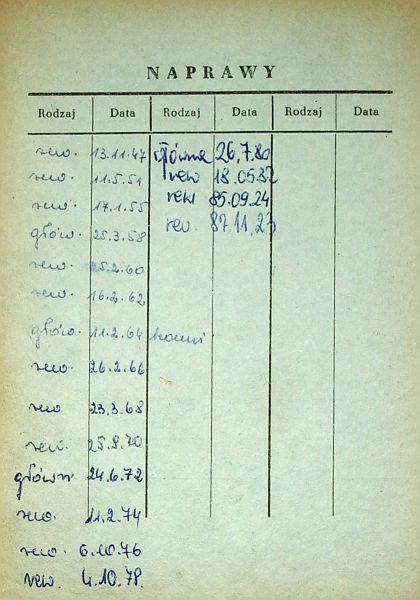 NAPRAWY
Rodzaj Data Rodzaj Data Rodzaj Data
rew. 13.11.47 główna 26.7.80
rew. 11.5.51 rew 18.05.82
rew. 17.1.55 rew 85.09.24
głów. 25.3.58 rev. 87.11.23
rew. 25.2.60
rew. 16.2.62
głów. 11.2.64
rew. 26.2.66
rew 23.3.68
rew. 25.9.70
główn 24.6.72
rew. 11.2.74
rew. 6.10.76
rew. 4.10.78.